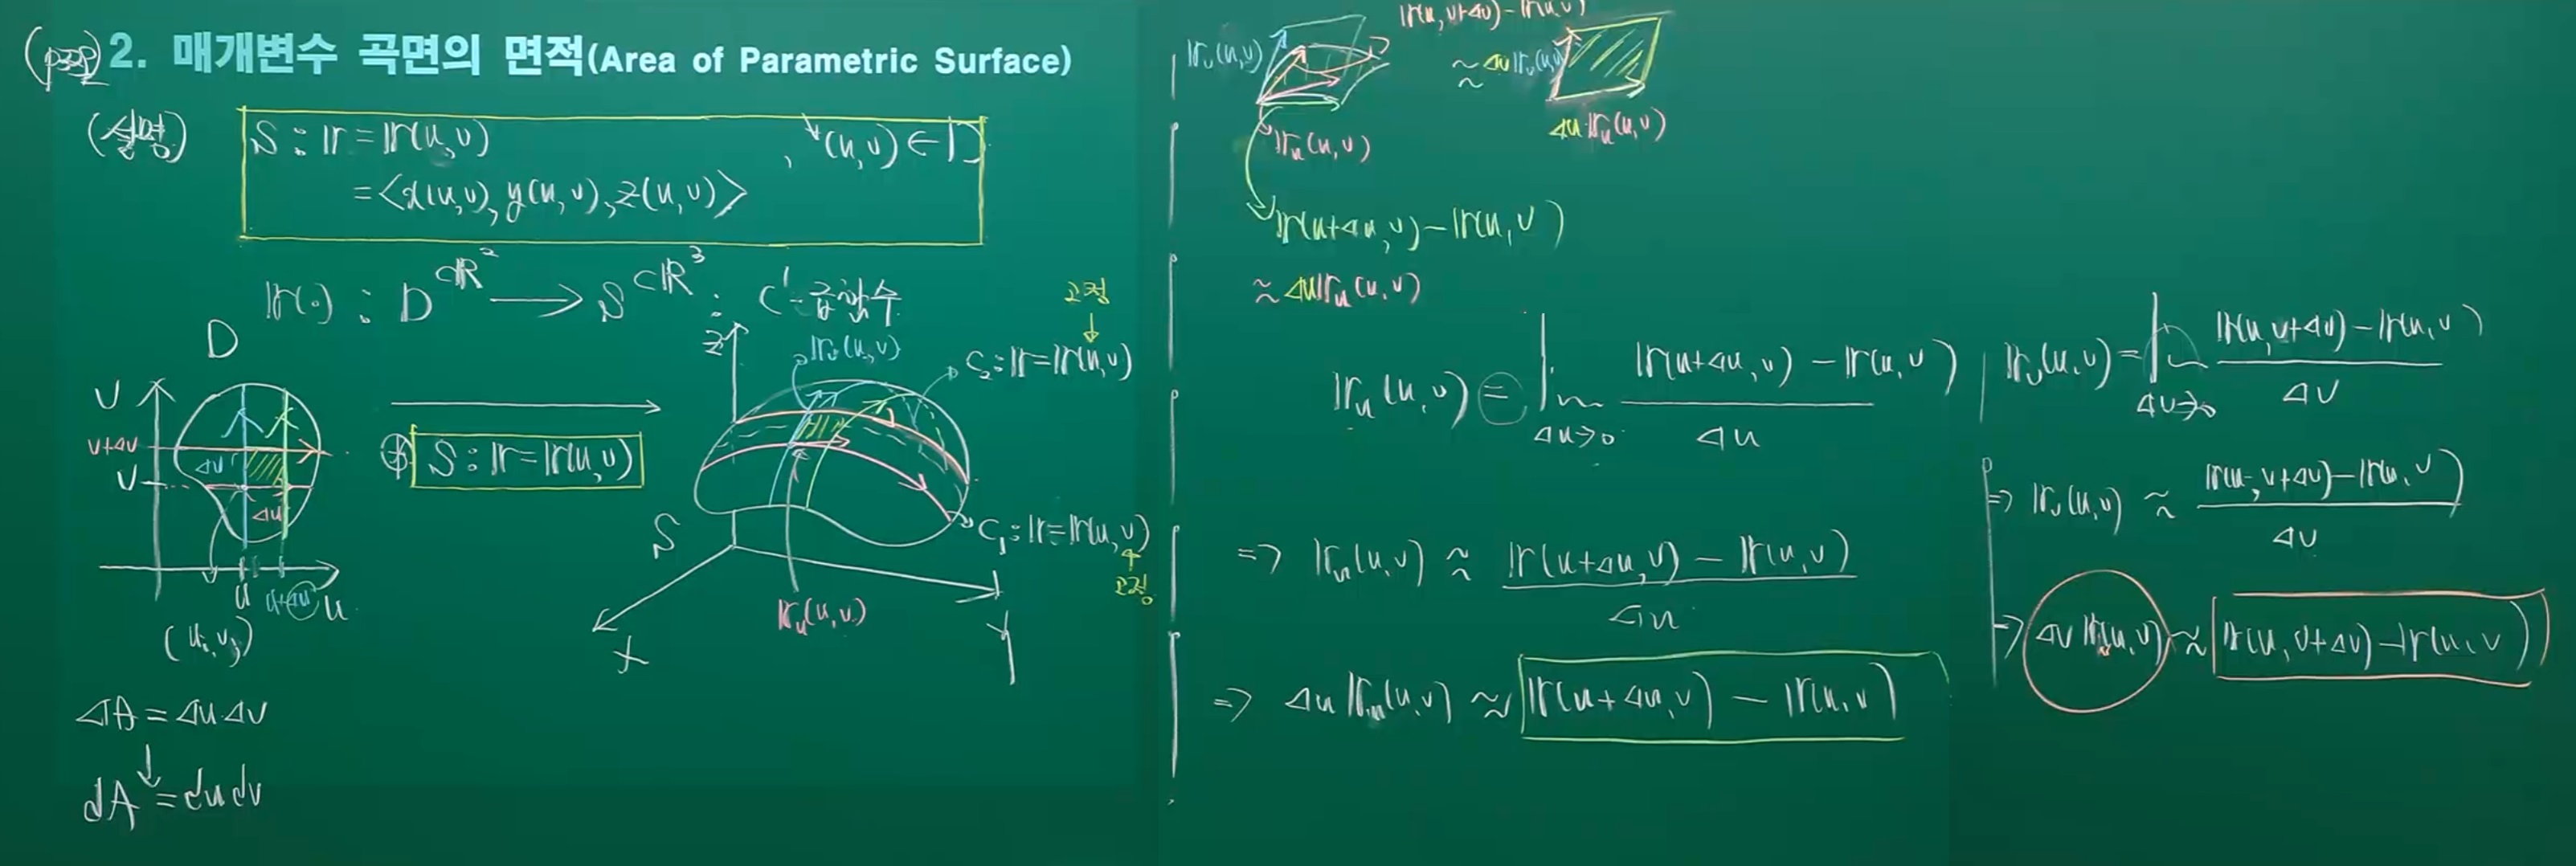 2. 매개변수 곡면의 면적(Area of Parametric Surface)
(설명)
S : r = r(u,v) , ∀(u,v) ∈ D
= <x(u,v), y(u,v), z(u,v)>
r(·) : D ⊂ R² → S ⊂ R³ : C¹-급함수
D
V
v+Δv
v
ΔV
Δu
u
u+Δu
u
(uᵢ, vⱼ)
S : r = r(u,v)
ΔA = Δu Δv
↓
dA = du dv
Z
r_v(u,v)
고정
↓
C₂ : r = r(u,v)
S
C₁ : r = r(u,v)
↑
고정
r_u(u,v)
X
Y
r(u,v+Δv) - r(u,v)
r_v(u,v)
≈ Δv r_v(u,v)
r_u(u,v)
Δu r_u(u,v)
r(u+Δu,v) - r(u,v)
≈ Δu r_u(u,v)
r_u(u,v) = lim Δu→0 (r(u+Δu,v) - r(u,v)) / Δu
⇒ r_u(u,v) ≈ (r(u+Δu,v) - r(u,v)) / Δu
⇒ Δu r_u(u,v) ≈ r(u+Δu,v) - r(u,v)
r_v(u,v) = lim Δv→0 (r(u,v+Δv) - r(u,v)) / Δv
⇒ r_v(u,v) ≈ (r(u,v+Δv) - r(u,v)) / Δv
⇒ Δv r_v(u,v) ≈ r(u,v+Δv) - r(u,v)